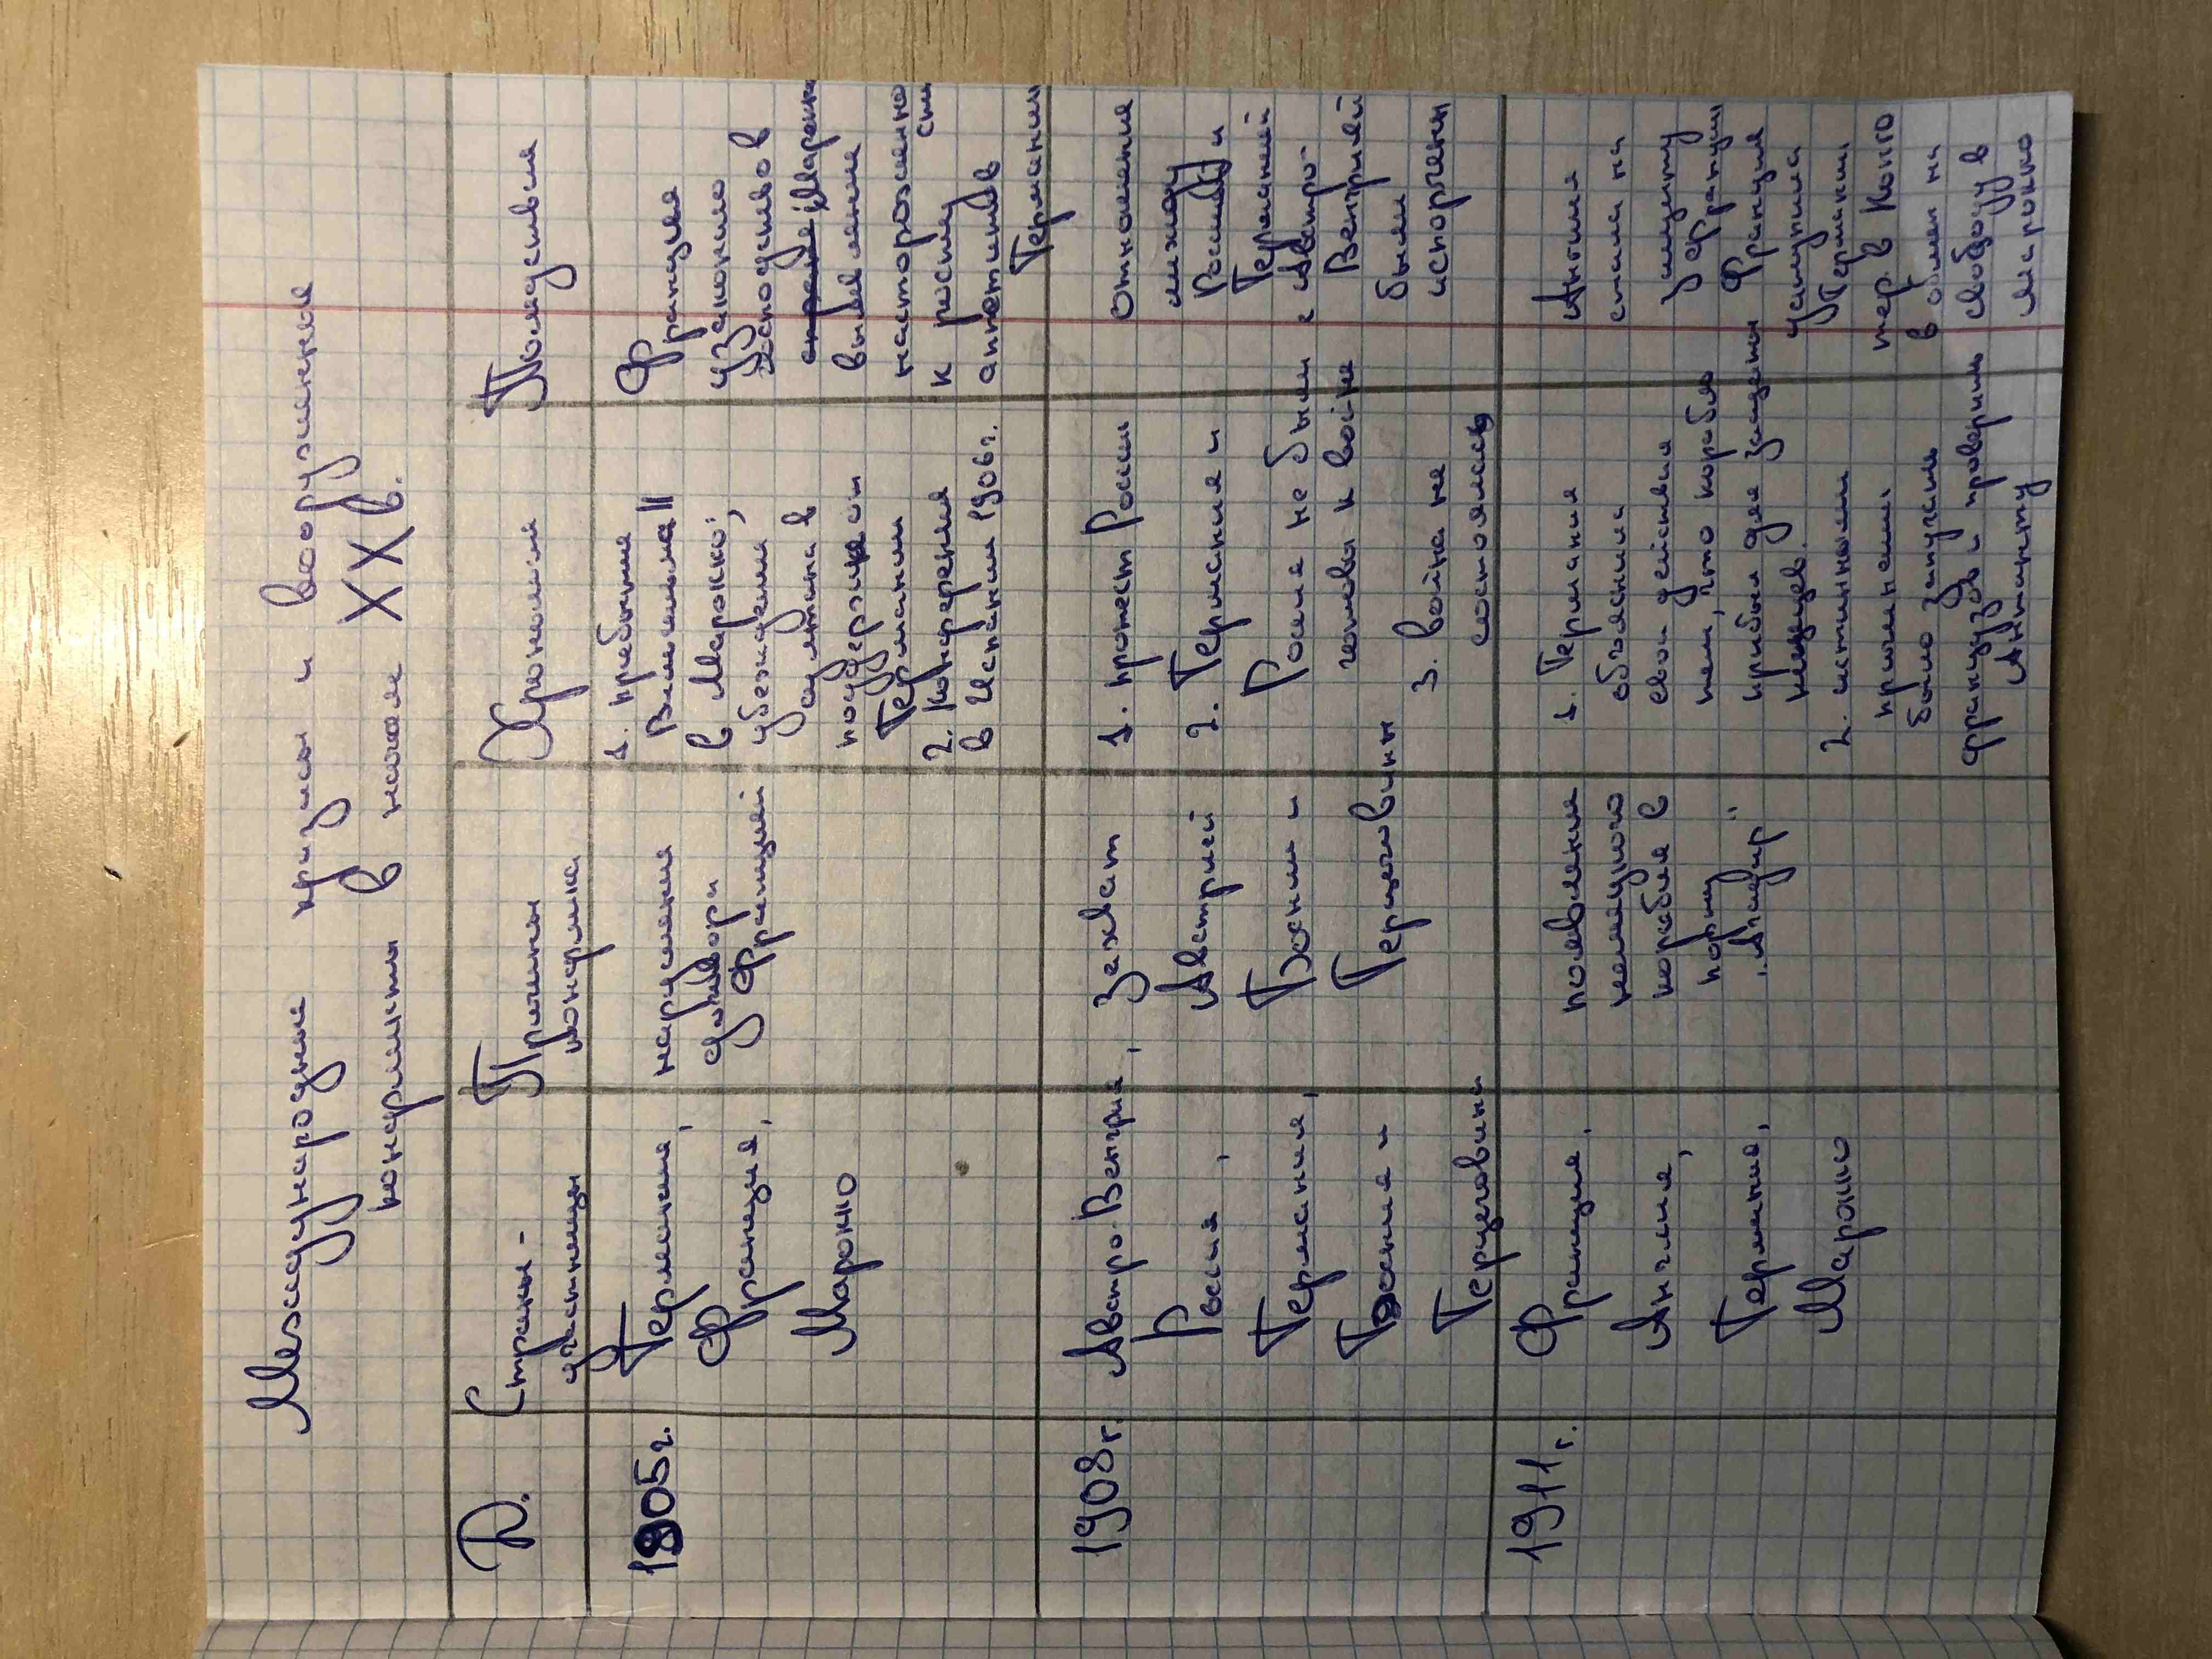 Международные кризисы и вооруженные
конфликты в начале XX в.
Д.
Страны-
участницы
Причины
конфликта
Хроникой
Последствия
1905г.
Германия,
Франция,
Марокко
нарушение
договора
Францией
1. прибытие
Вильгельма II
в Марокко;
убеждения
султана в
поддержке от
Германии
2. Конференция
в Испании 1906г.
Франция
узаконило
господство в
Марокко
выявление
настороженно
сти
к росту
аппетитов
Германии
1908г.
Австро-Венгрия,
Россия,
Германия,
Босния и
Герцеговина
захват
Австрией
Боснии и
Герцеговины
1. протест России
2. Германия и
Россия не были
готовы к войне
3. Война не
состоялась
отношение
между
Россией и
Германией
и Австро-
Венгрией
были
испорчены
1911г.
Франция,
Англия,
Германия,
Марокко
появление
немецкого
корабля в
порту
"Агадир"
1. Германия
объяснила
свои действия
тем, что корабль
прибыл для защиты
немцев.
2. истинными
причинами
было запугать
французов и проверить
Антанту
Англия
стала на
защиту
Франции
Франция
уступила
Германии
тер. в Конго
в обмен на
свободу в
Марокко